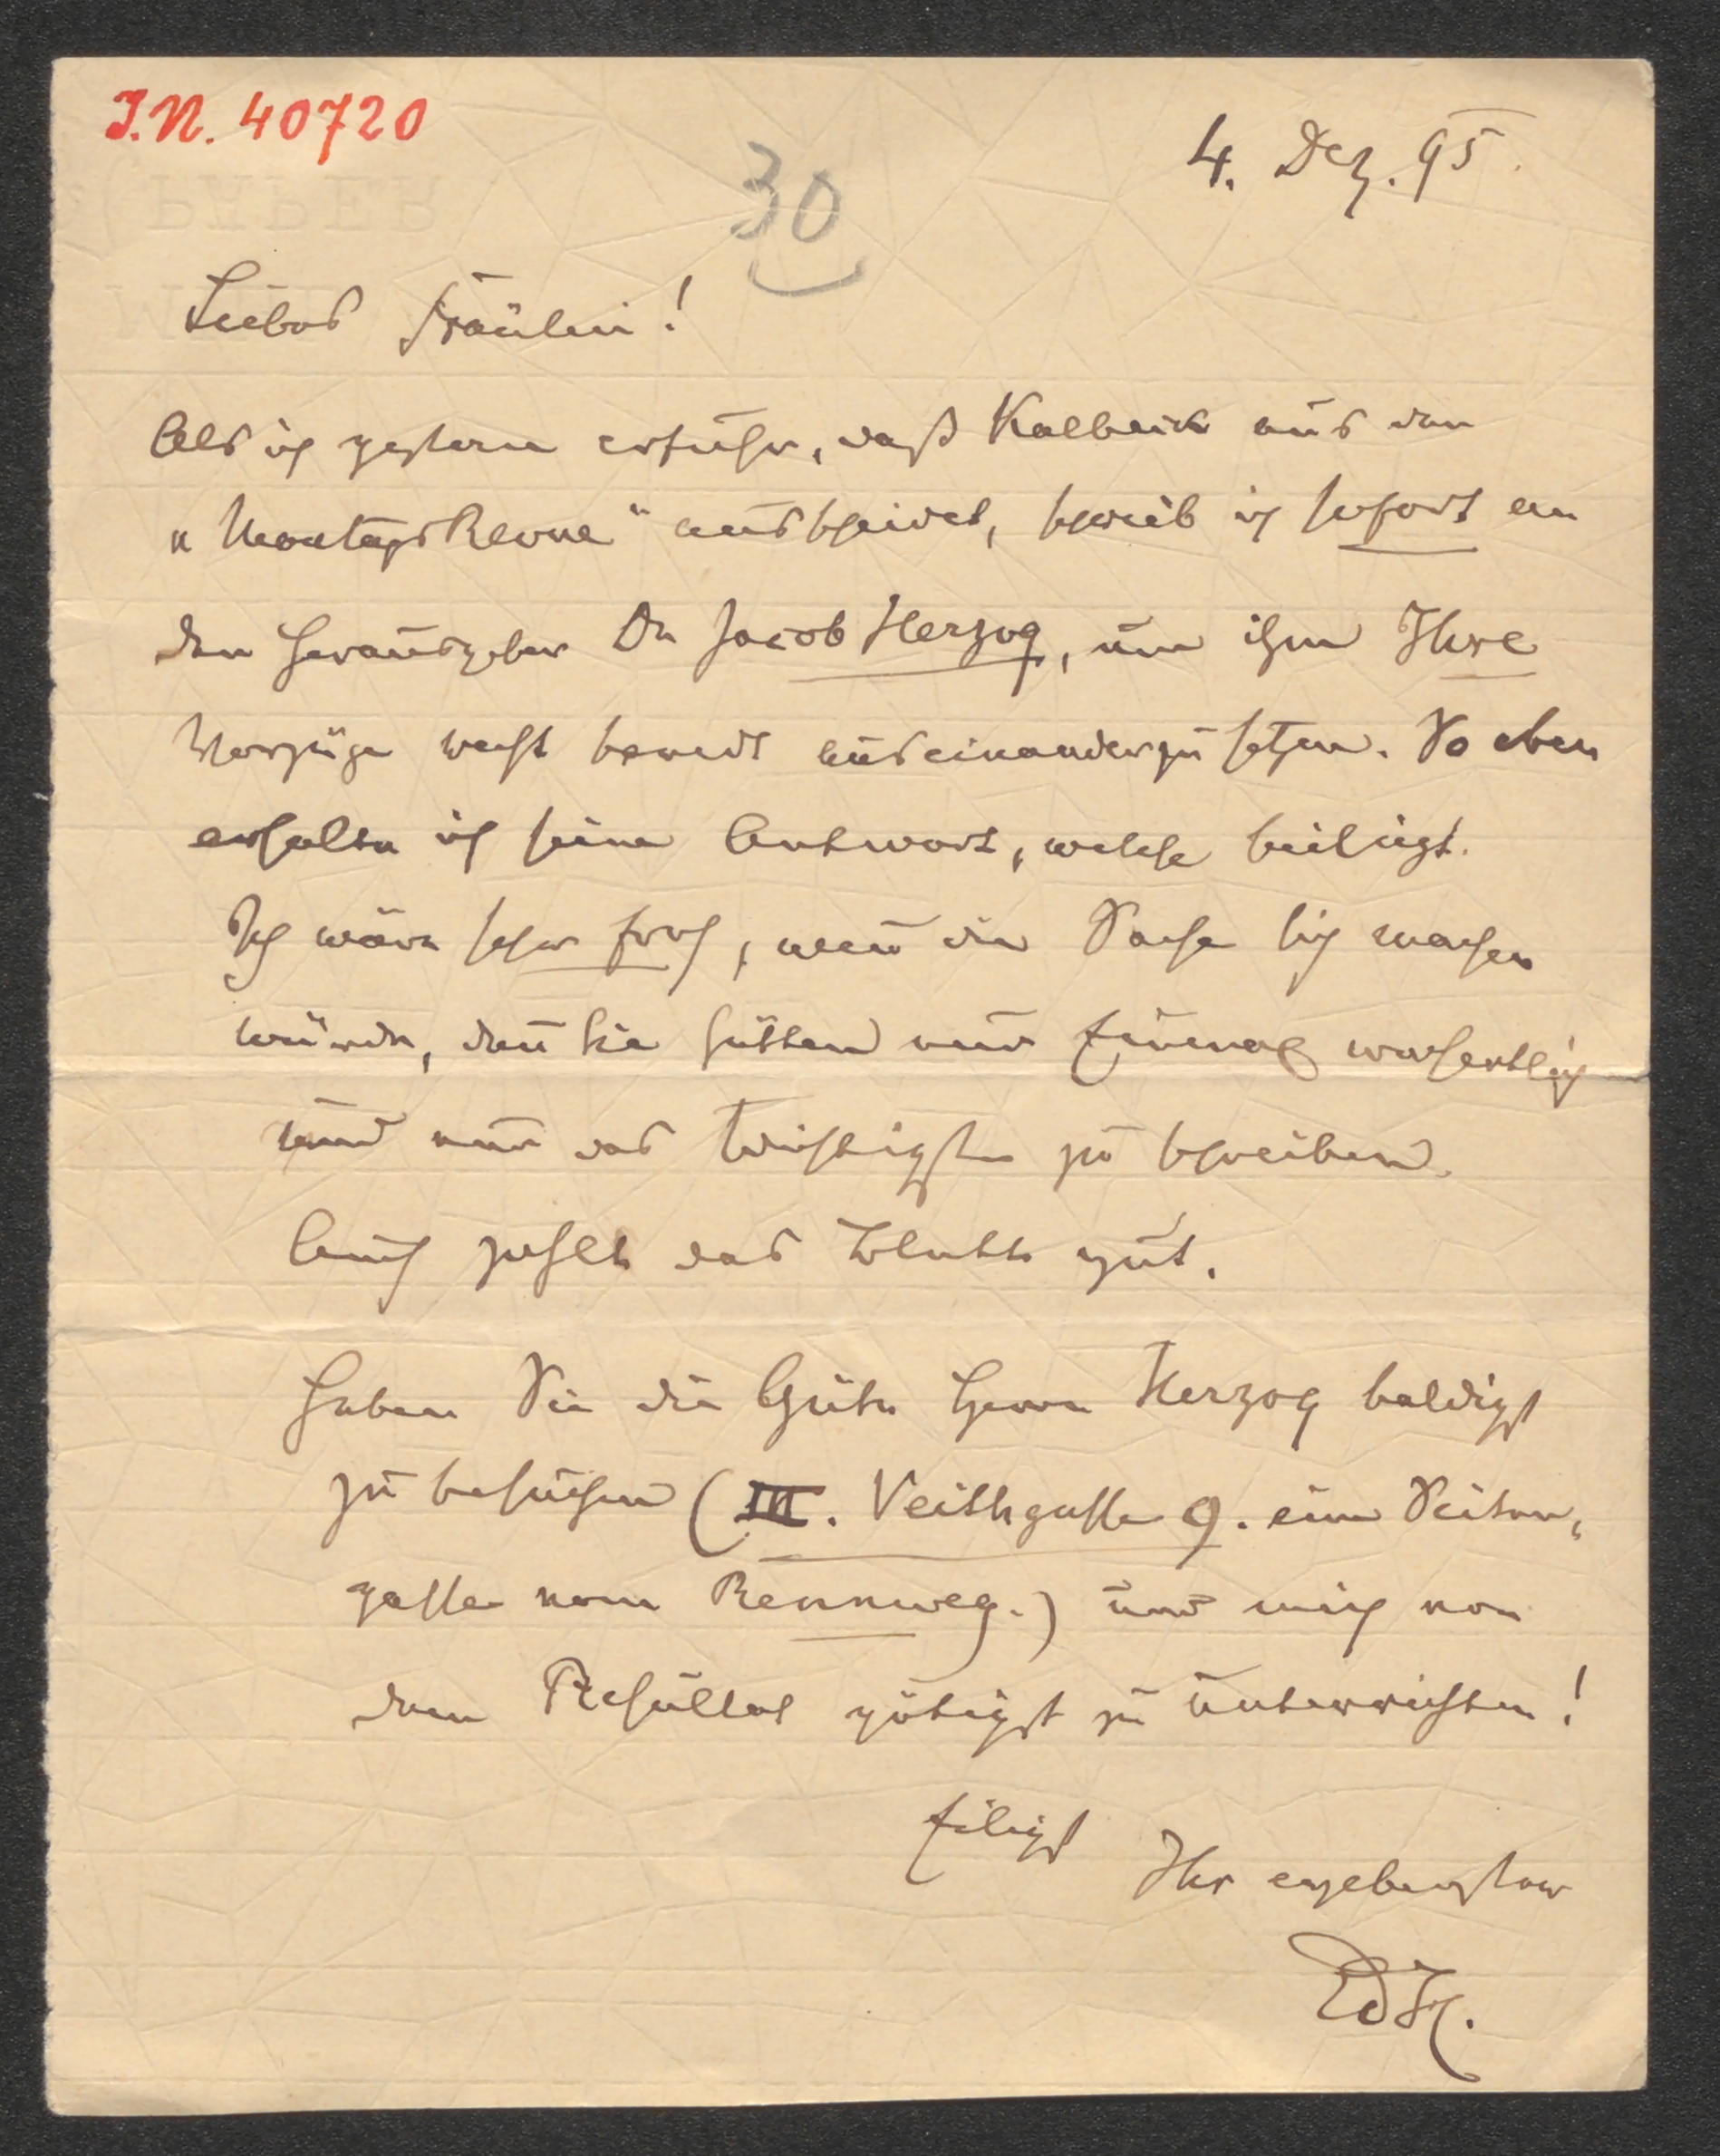 I.N. 40720
4. Dez. 95.
30
Liebes Fräulein!
Als ich gestern erfuhr, daß Kalbeck aus der
„Montags Revue" ausscheidet, schrieb ich sofort an
den Herausgeber Dr Jacob Herzog, um ihm Ihre
Vorzüge recht beredt auseinanderzusetzen. So eben
erhalte ich seine Antwort, welche beiliegt.
Ich wäre sehr froh, wenn die Sache sich machen
würde, denn Sie hätten nur Einmal wochentlich
und nur das Wichtigste zu schreiben.
Auch zahlt das Blatt gut.
Haben Sie die Güte Herrn Herzog baldigst
zu besuchen (III. Veithgasse 9. eine Seiten-
gasse vom Rennweg.) und mich von
dem Resultat gütigst zu unterrichten!
Eiligst
Ihr ergebenster
EdH.